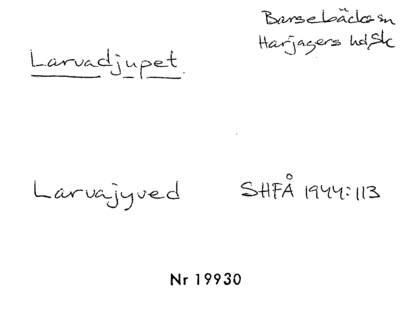 Barsebäcks sn
Harjagers hd, Sk
Larvadjupet.
Larvajyved SHFÅ 1944:113
Nr 19930